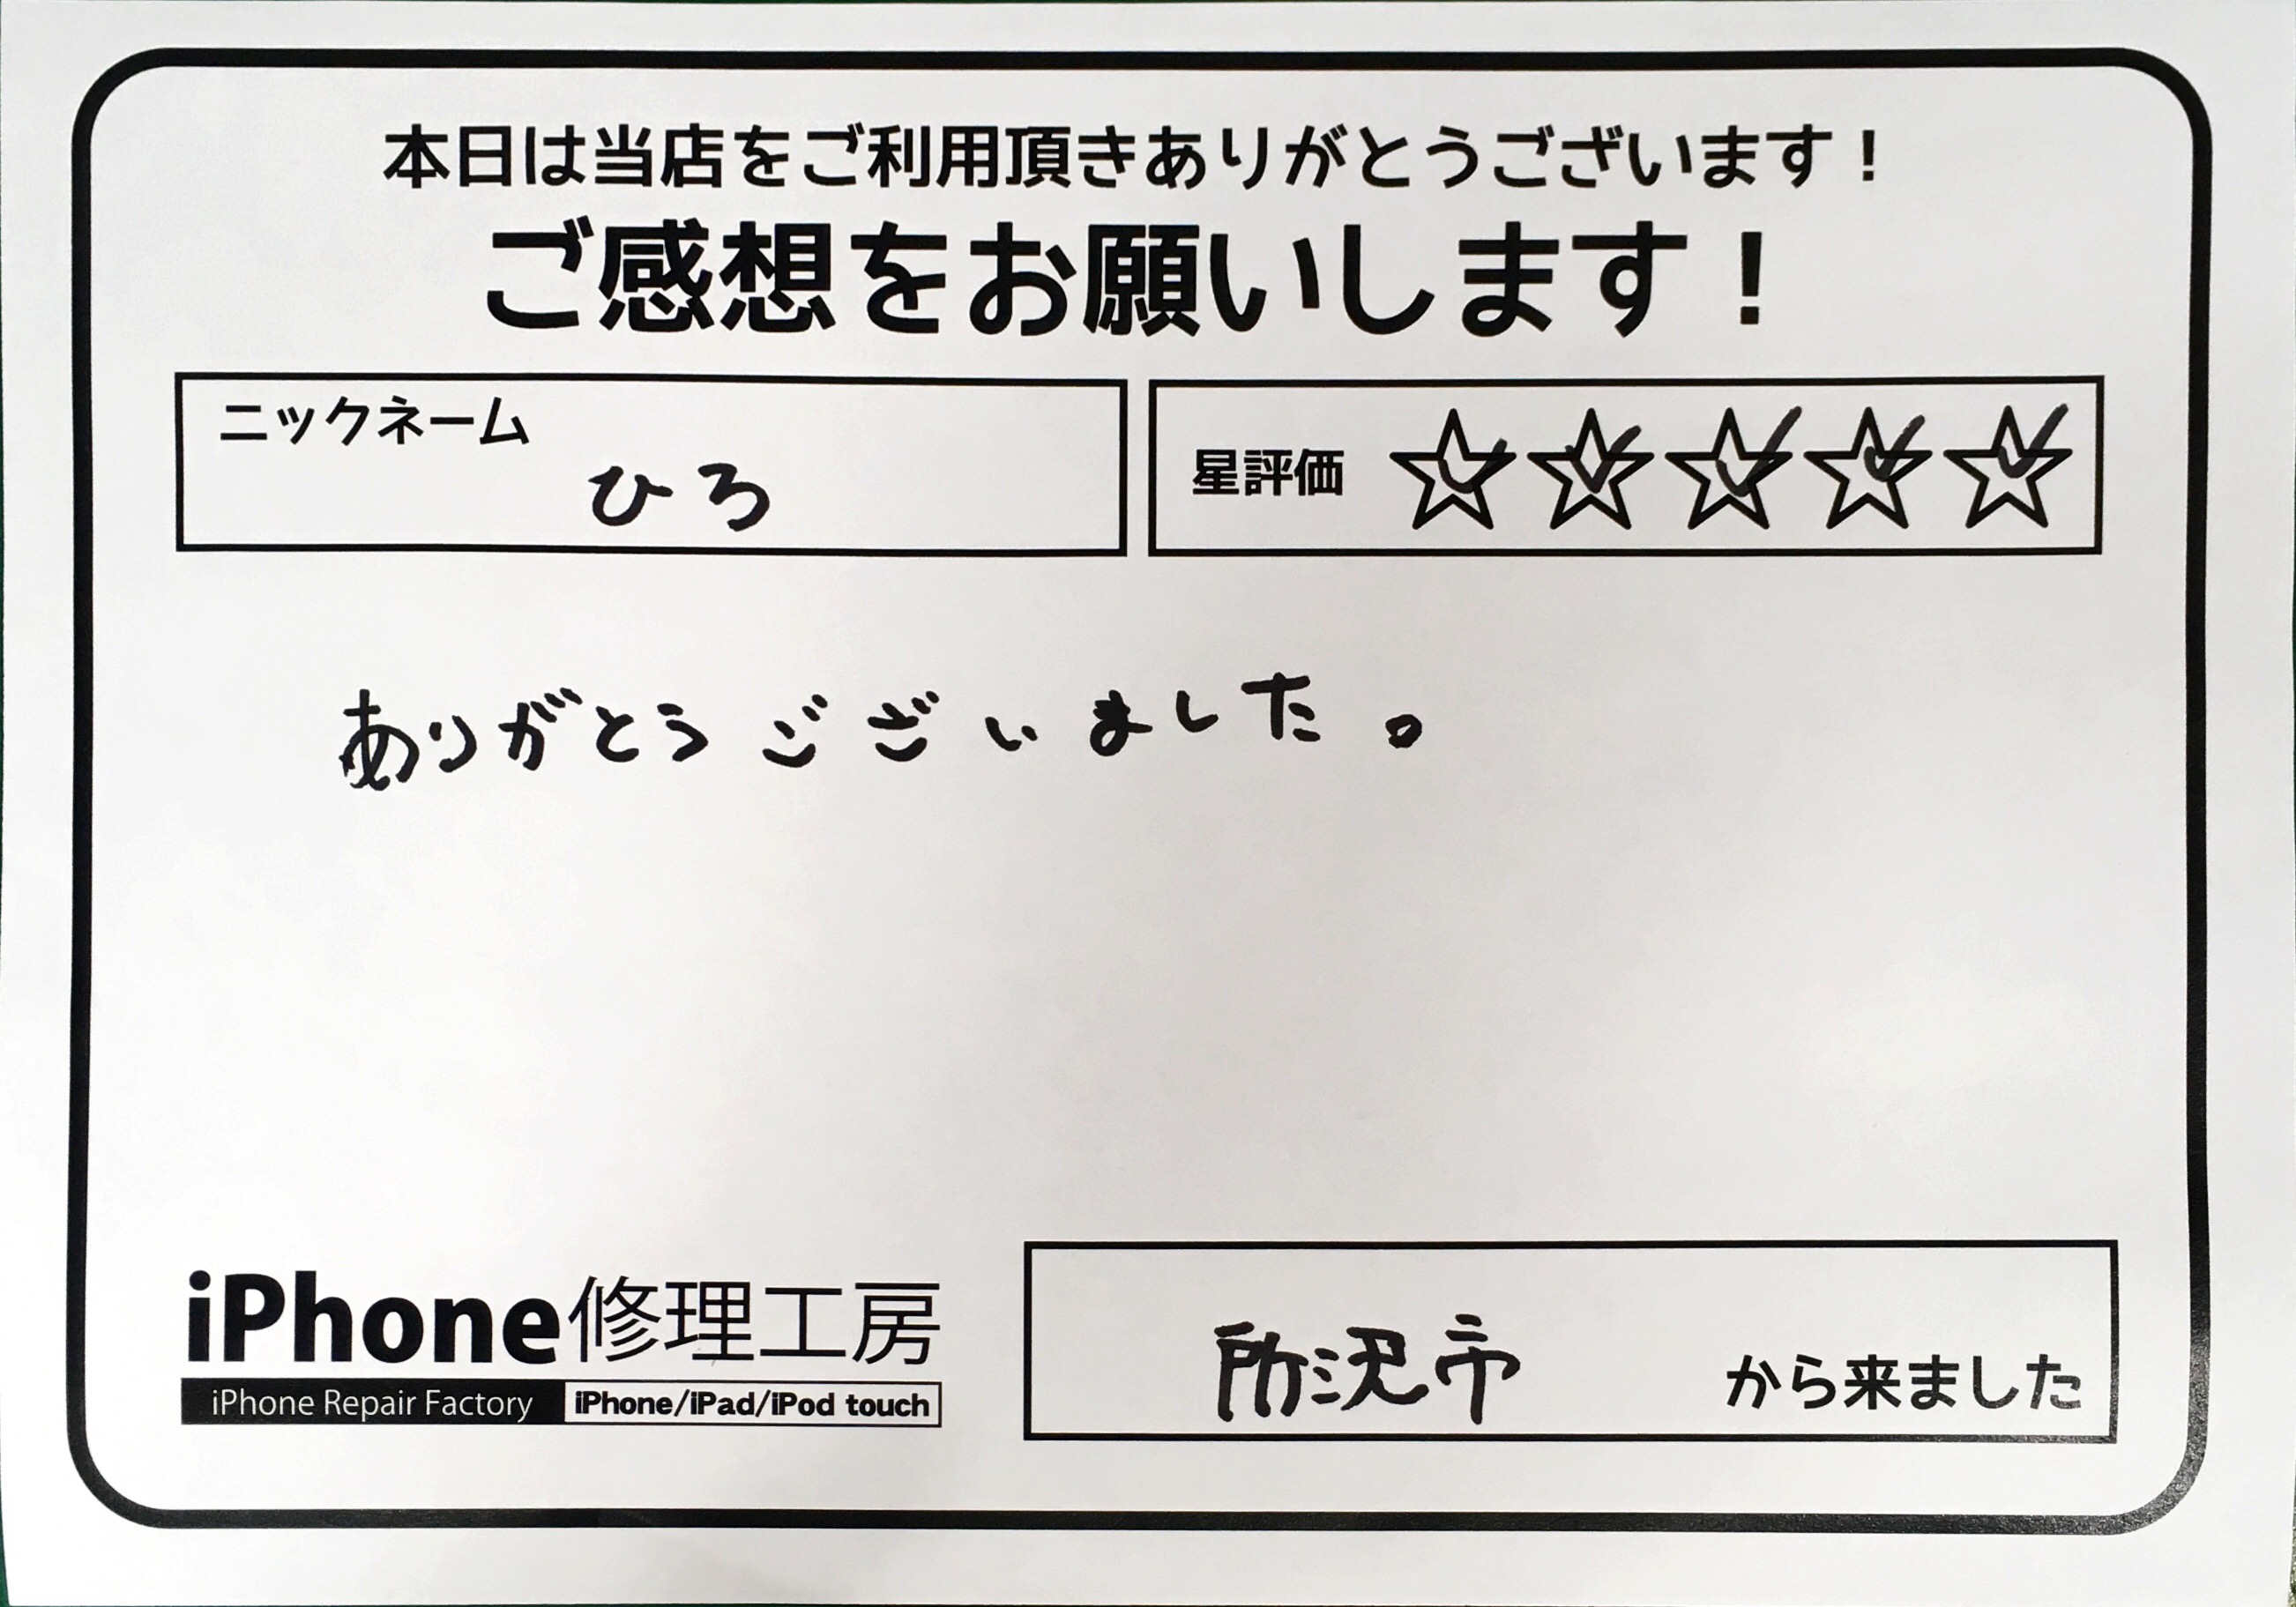 本日は当店をご利用頂きありがとうございます！
ご感想をお願いします！
ニックネーム
ひろ
星評価 ☆☆☆☆☆
ありがとうございました。
iPhone修理工房
iPhone Repair Factory iPhone/iPad/iPod touch
所沢市 から来ました